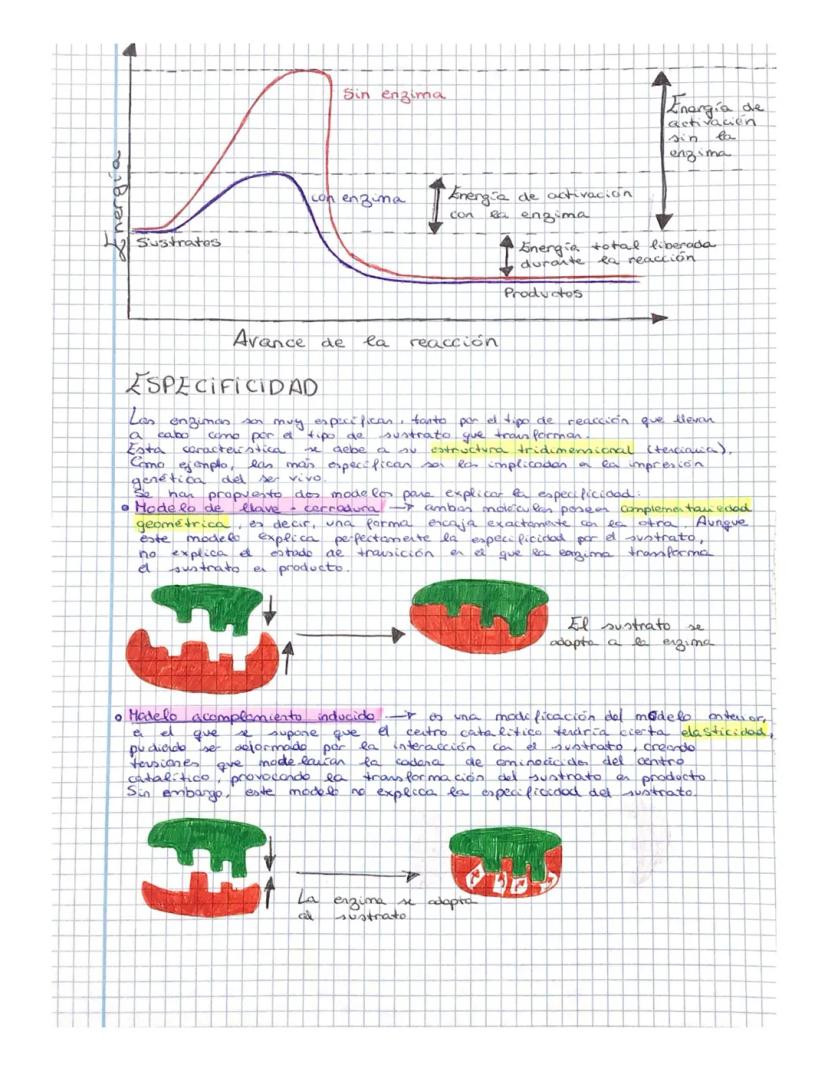 Sin enzima
Energía de
activación
sin la
enzima
Energía
con enzima
Energía de activación
con la enzima
Sustratos
Energía total liberada
durante la reacción
Productos
Avance de la reacción
ESPECIFICIDAD
Las enzimas son muy específicas, tanto por el tipo de reacción que llevan
a cabo como por el tipo de sustrato que transforman.
Esta característica se debe a su estructura tridimensional (terciaria).
Como ejemplo, las más específicas son las implicadas en la impresión
genética del ser vivo.
Se han propuesto dos modelos para explicar la especificidad:
• Modelo de llave - cerradura → ambas moléculas poseen complementariedad
geométrica, es decir, una forma encaja exactamente con la otra. Aunque
este modelo explica perfectamente la especificidad por el sustrato,
no explica el estado de transición en el que la enzima transforma
el sustrato en producto.
El sustrato se
adapta a la enzima
• Modelo acomplamiento inducido → es una modificación del modelo anterior,
en el que se supone que el centro catalítico tendría cierta elasticidad,
pudiendo ser deformado por la interacción con el sustrato, creando
tensiones que modelarían la cadena de aminoácidos del centro
catalítico, provocando la transformación del sustrato en producto.
Sin embargo, este modelo no explica la especificidad del sustrato.
La enzima se adapta
al sustrato